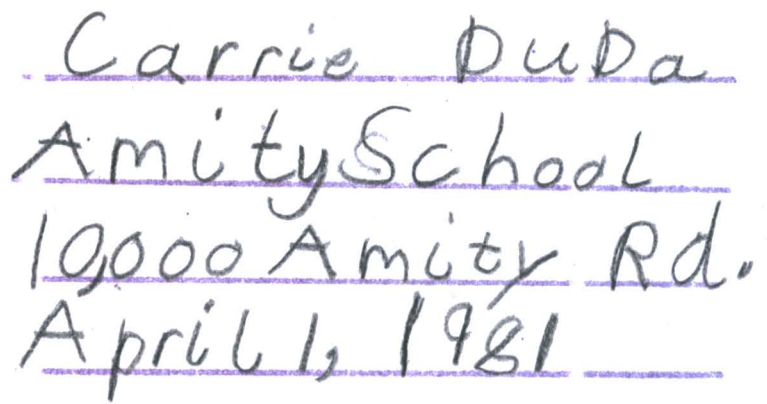 Carrie DuDa
Amity School
10,000 Amity Rd.
April 1, 1981